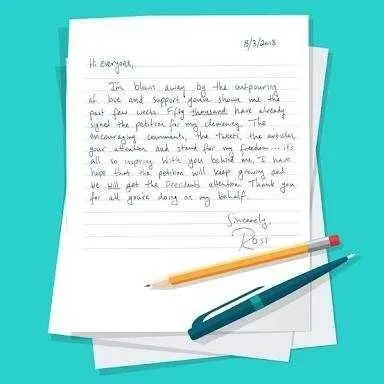 8/3/2018
Hi everyone,
I'm blown away by the outpouring
of love and support you've shown me the
past few weeks. Fifty thousand have already
signed the petition for my clemency. The
encouraging comments, the tweets, the articles,
your attention and stand for my freedom.... it's
all so inspiring. With you behind me, I have
hope that the petition will keep growing and
we will get the President's attention. Thank you
for all you're doing on my behalf.
Sincerely,
Rosi